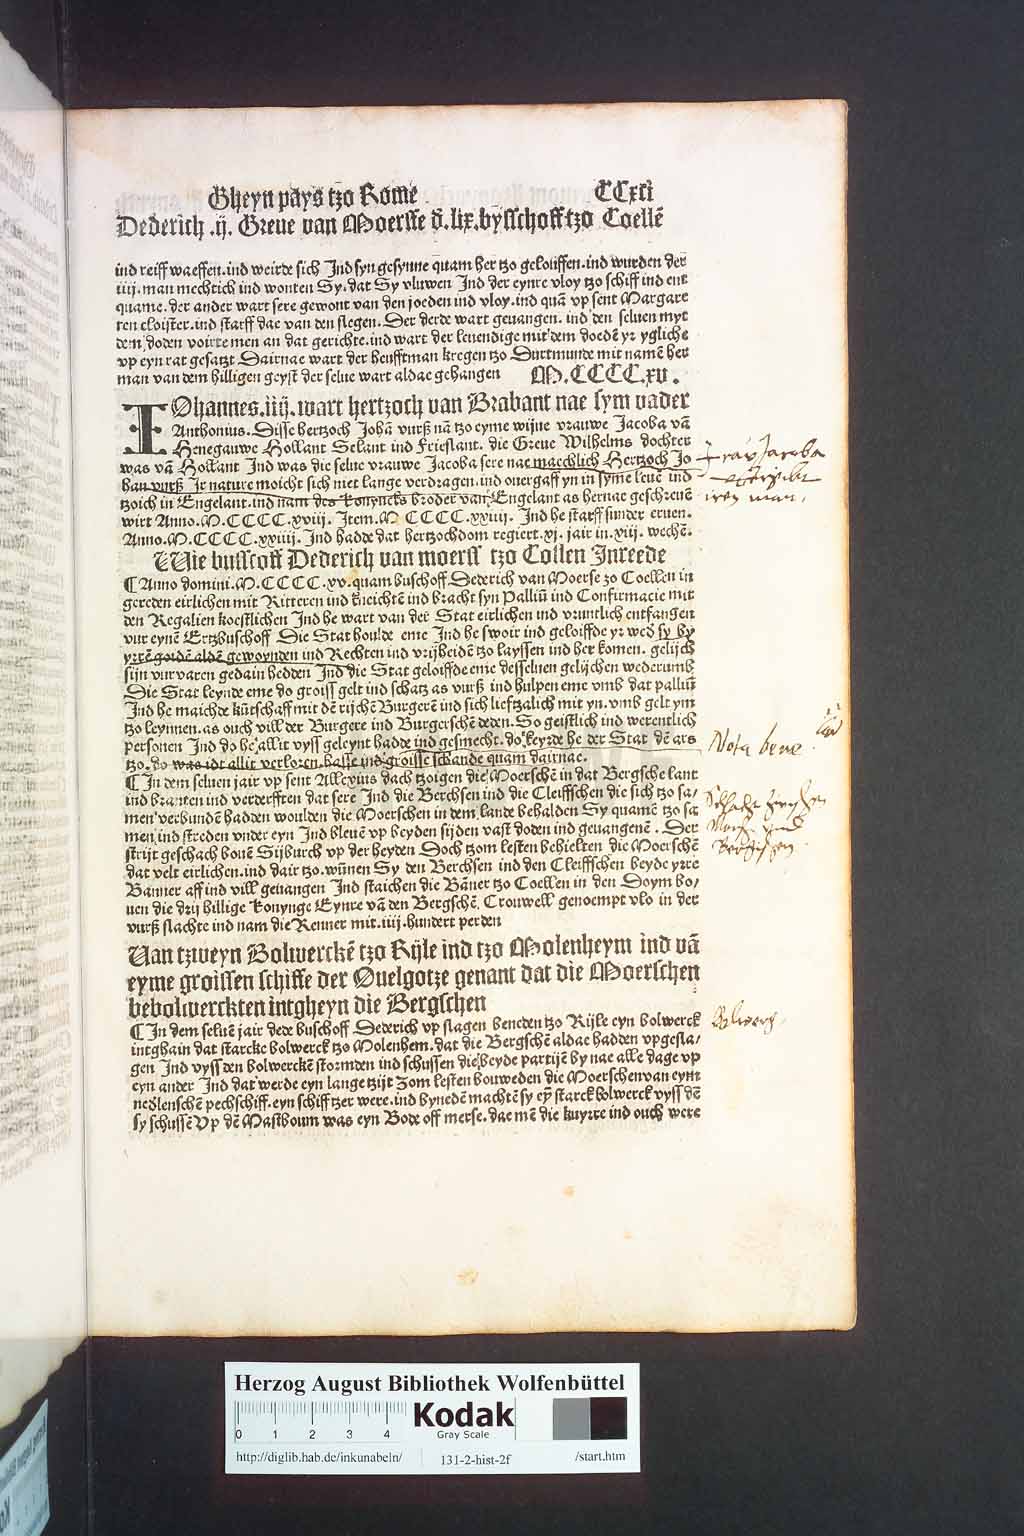 Gheyn pays tzo Rome CCxci
Dederich .ij. Greue van Moersse d̄. lix. bysschoff tzo Coellē
ind reiff waeffen. ind weirde sich Ind syn gesynne quam her tzo gelouffen. ind wurden der
iiij. man mechtich ind wonten Sy. dat Sy vluwen Ind der eynre vloy tzo schiff ind ent
quame. der ander wart sere gewont van den joeden ind vloy. ind quā vp sent Margare
ten cloister. ind starff dae van den slegen. Der derde wart geuangen. ind den seluen myt
dem doden voirte men an dat gerichte. ind wart der leuendige mit dem doedē yr ygliche
vp eyn rat gesatzt Dairnae wart der heufftman kregen tzo Durtmunde mit namē her
man van dem hilligen geyst der selue wart aldae gehangen M.CCCC.xv.
IOhannes. iiij. wart hertzoch van Brabant nae sym vader
Anthonius. Disse hertzoch Johā vurß nā tzo eyme wijue vrauwe Jacoba vā
Henegauwe Hollant Selant ind Frieslant. die Greue Wilhelms dochter
was vā Hollant Ind was die selue vrauwe Jacoba sere nae maechlich Hertzoch Jo
han vurß Jr nature moicht sich niet lange verdragen. ind ouergaff yn in syme leuē ind
tzoich in Engelant. ind nam des konyncks broder van Engelant as hernae geschreuē
wirt Anno. M.CCCC.xviij. Item. M CCCC.xxiiij. Ind he starff sunder eruen.
Anno. M.CCCC.xxiiij. Ind hadde dat hertzochdom regiert. xj. jair in. xiij. wechē.
Wie busscoff Dederich van moerss tzo Collen Inreede
¶ Anno domini. M.CCCC.xv. quam buschoff. Dederich van Moerse zo Coellen in
gereden eirlichen mit Ritteren ind kneichtē ind bracht syn Palliū ind Confirmacie mit
den Regalien koestlichen Ind he wart van der Stat eirlichen ind vruntlich entfangen
vur eynē Ertzbuschoff Die Stat houlde eme Ind he swoir ind geloiffde yr wed̄ sy by
yrrē goidē aldē gewoynden ind Rechten ind vrijheidē tzo layssen ind her komen. gelijch
sijn vurvaren gedain hedden Ind die Stat geloiffde eme desseluen gelijchen wederumb
Die Stat leynde eme do groiss gelt ind schatz as vurß ind hulpen eme vmb dat palliū
Ind he maichde kūtschaff mit dē rijchē Burgerē ind sich lieftzalich mit yn. vmb gelt ym
tzo leynnen. as ouch vill der Burgere ind Burgerschē deden. So geistlich ind werentlich
personen Ind do he allit vyss geleynt hadde ind gesmecht. do keyrde he der Stat dē ars
tzo. do was idt allit verloren. hasse ind groisse schande quam dairnae.
¶ In dem seluen jair vp sent Allexius dach tzoigen die Moerschē in dat Bergsche lant
ind branten ind verderfften dat sere Ind die Berchsen ind die Cleiffschen die sich tzo sa/
men verbunden hadden woulden die Moerschen in dem lande behalden Sy quamē tzo sa
men ind streden vnder eyn Ind bleuē vp beyden sijden vast doden ind geuangenē. Der
strijt geschach bouē Sijburch vp der heyden Doch tzom lesten behielten die Moerschē
dat velt eirlichen. ind dair tzo. wūnen Sy den Berchsen ind den Cleiffschen beyde yrre
Banner aff ind vill geuangen Ind staichen die Bāner tzo Coellen in den Doym bo/
uen die drij hillige konynge Eynre vā den Bergschē. Crouwell genoempt vlo in der
vurß slachte ind nam die Renner mit. iiij. hundert perden
Van tzweyn Bolwerckē tzo Rijle ind tzo Molenheym ind vā
eyme groissen schiffe der Ouelgotze genant dat die Moerschen
bebolwerckten intgheyn die Bergschen
¶ In dem seluē jair dede buschoff. Dederich vp slagen beneden tzo Rijle eyn bolwerck
intghain dat starcke bolwerck tzo Molenhem. dat die Bergschē aldae hadden vpgesla/
gen Ind vyss den bolwerckē stormden ind schussen die beyde partijē by nae alle dage vp
eyn ander Ind dat werde eyn lange tzijt Zom lesten bouweden die Moerschen van eym
nedlenschē pechschiff. eyn schiff tzer were. ind bynedē machtē sy eȳ starck bolwerck vyss dē
sy schussē Vp dē Mastboum was eyn Bode off merse. dae mē die kuyrte ind ouch were
fraw Jacoba
iren man.
Nota bene
Schlacht zwyschen
Mors und
Bergischen
Bolwerg
Herzog August Bibliothek Wolfenbüttel
0 1 2 3 4 Kodak
Gray Scale
http://diglib.hab.de/inkunabeln/ 131-2-hist-2f /start.htm